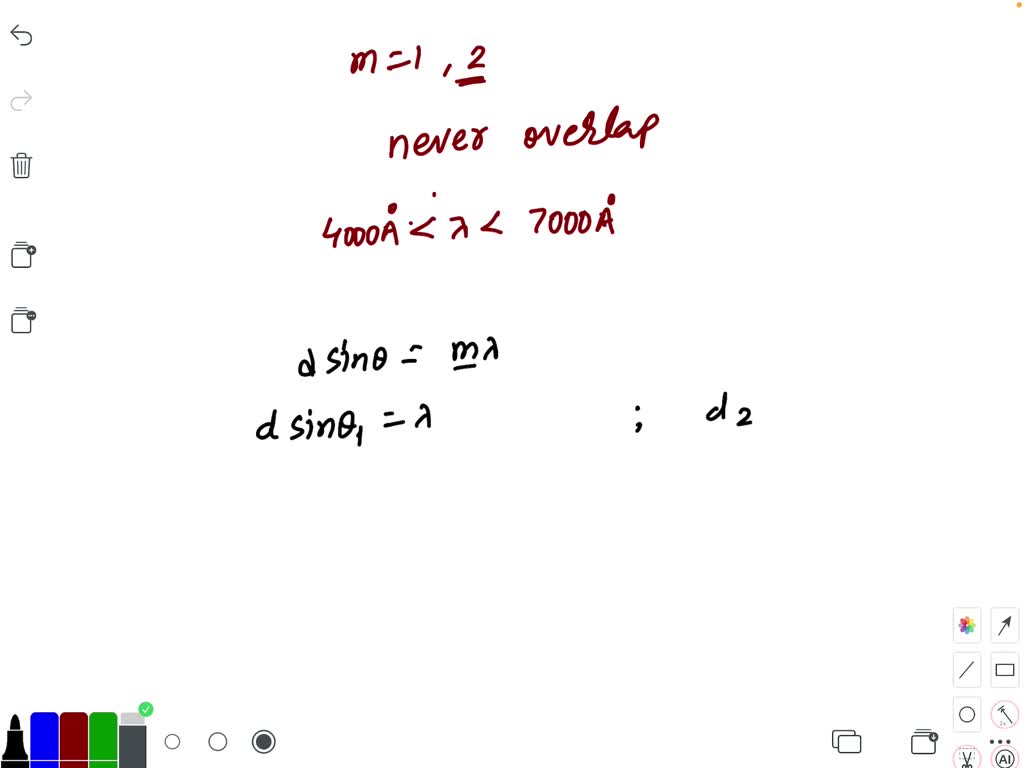 m = 1 , 2
never overlap
4000Å < λ < 7000Å
d sinθ = mλ
d sinθ₁ = λ ; d 2
AI